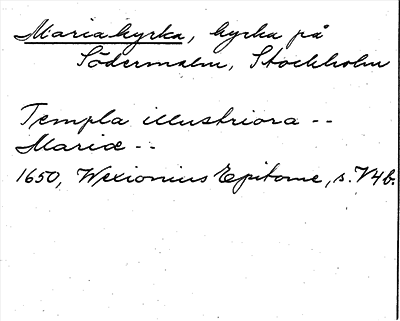 Mariakyrka, kyrka på
Södermalm, Stockholm
Templa illustriora --
Mariæ --
1650, Wexionius Epitome, s. V4b.